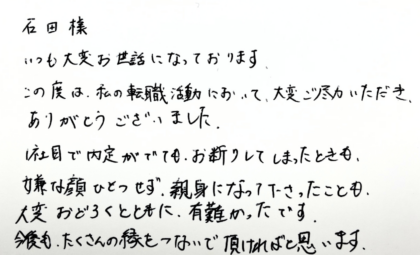 石田様
いつも大変お世話になっております.
この度は、私の転職活動において、大変ご尽力いただき、
ありがとうございました.
1社目で内定がでても、お断りしてしまったときも、
嫌な顔ひとつせず、親身になって下さったことも、
大変おどろくとともに、有難かったです.
今後も、たくさんの縁をつないで頂ければと思います.